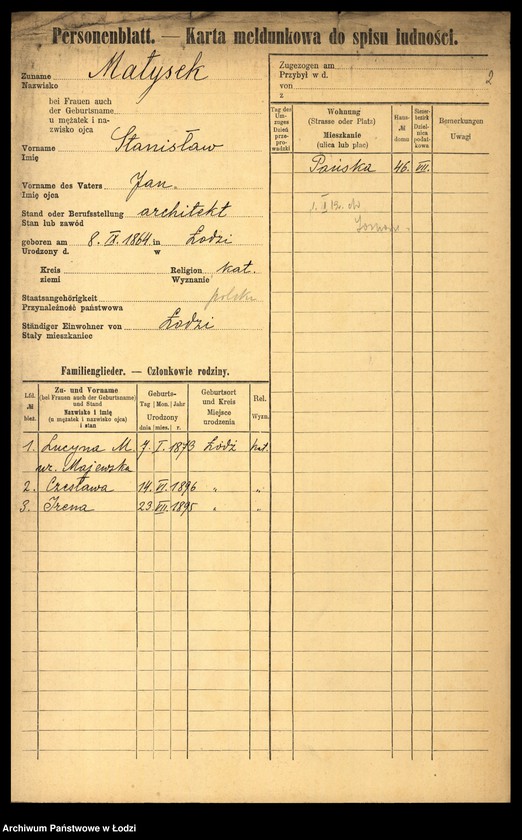 Personenblatt. — Karta meldunkowa do spisu ludności.
Zuname Małysek
Nazwisko
bei Frauen auch
der Geburtsname
u mężatek i na-
zwisko ojca
Vorname Stanisław
Imię
Vorname des Vaters Jan.
Imię ojca
Stand oder Berufsstellung architekt
Stan lub zawód
geboren am 8. IX. 1864. in Łodzi
Urodzony d. w
Kreis Religion kat.
ziemi Wyznanie
Staatsangehörigkeit polska
Przynależność państwowa
Ständiger Einwohner von Łodzi
Stały mieszkaniec
Zugezogen am
Przybył w d. 2
von
z
Tag des Um-zuges Dzień prze-prowadzki
Wohnung (Strasse oder Platz) Mieszkanie (ulica lub plac)
Haus- № domu
Steuer-bezirk Dziel-nica podat-kowa
Bemerkungen Uwagi
Pańska 46. VII.
Familienglieder. — Członkowie rodziny.
Lfd. № bież.
Zu- und Vorname (bei Frauen auch der Geburtsname) und Stand Nazwisko i imię (u mężatek i nazwisko ojca) i stan
Geburts- Tag | Mon. | Jahr Urodzony dnia | mies. | r.
Geburtsort und Kreis Miejsce urodzenia
Rel. Wyzn.
1. Lucyna M. 7. I. 1873 Łódź kat.
ur. Majewska
2. Czesława 14. VI. 1896 " "
3. Irena 23. VII. 1895 " "
Archiwum Państwowe w Łodzi